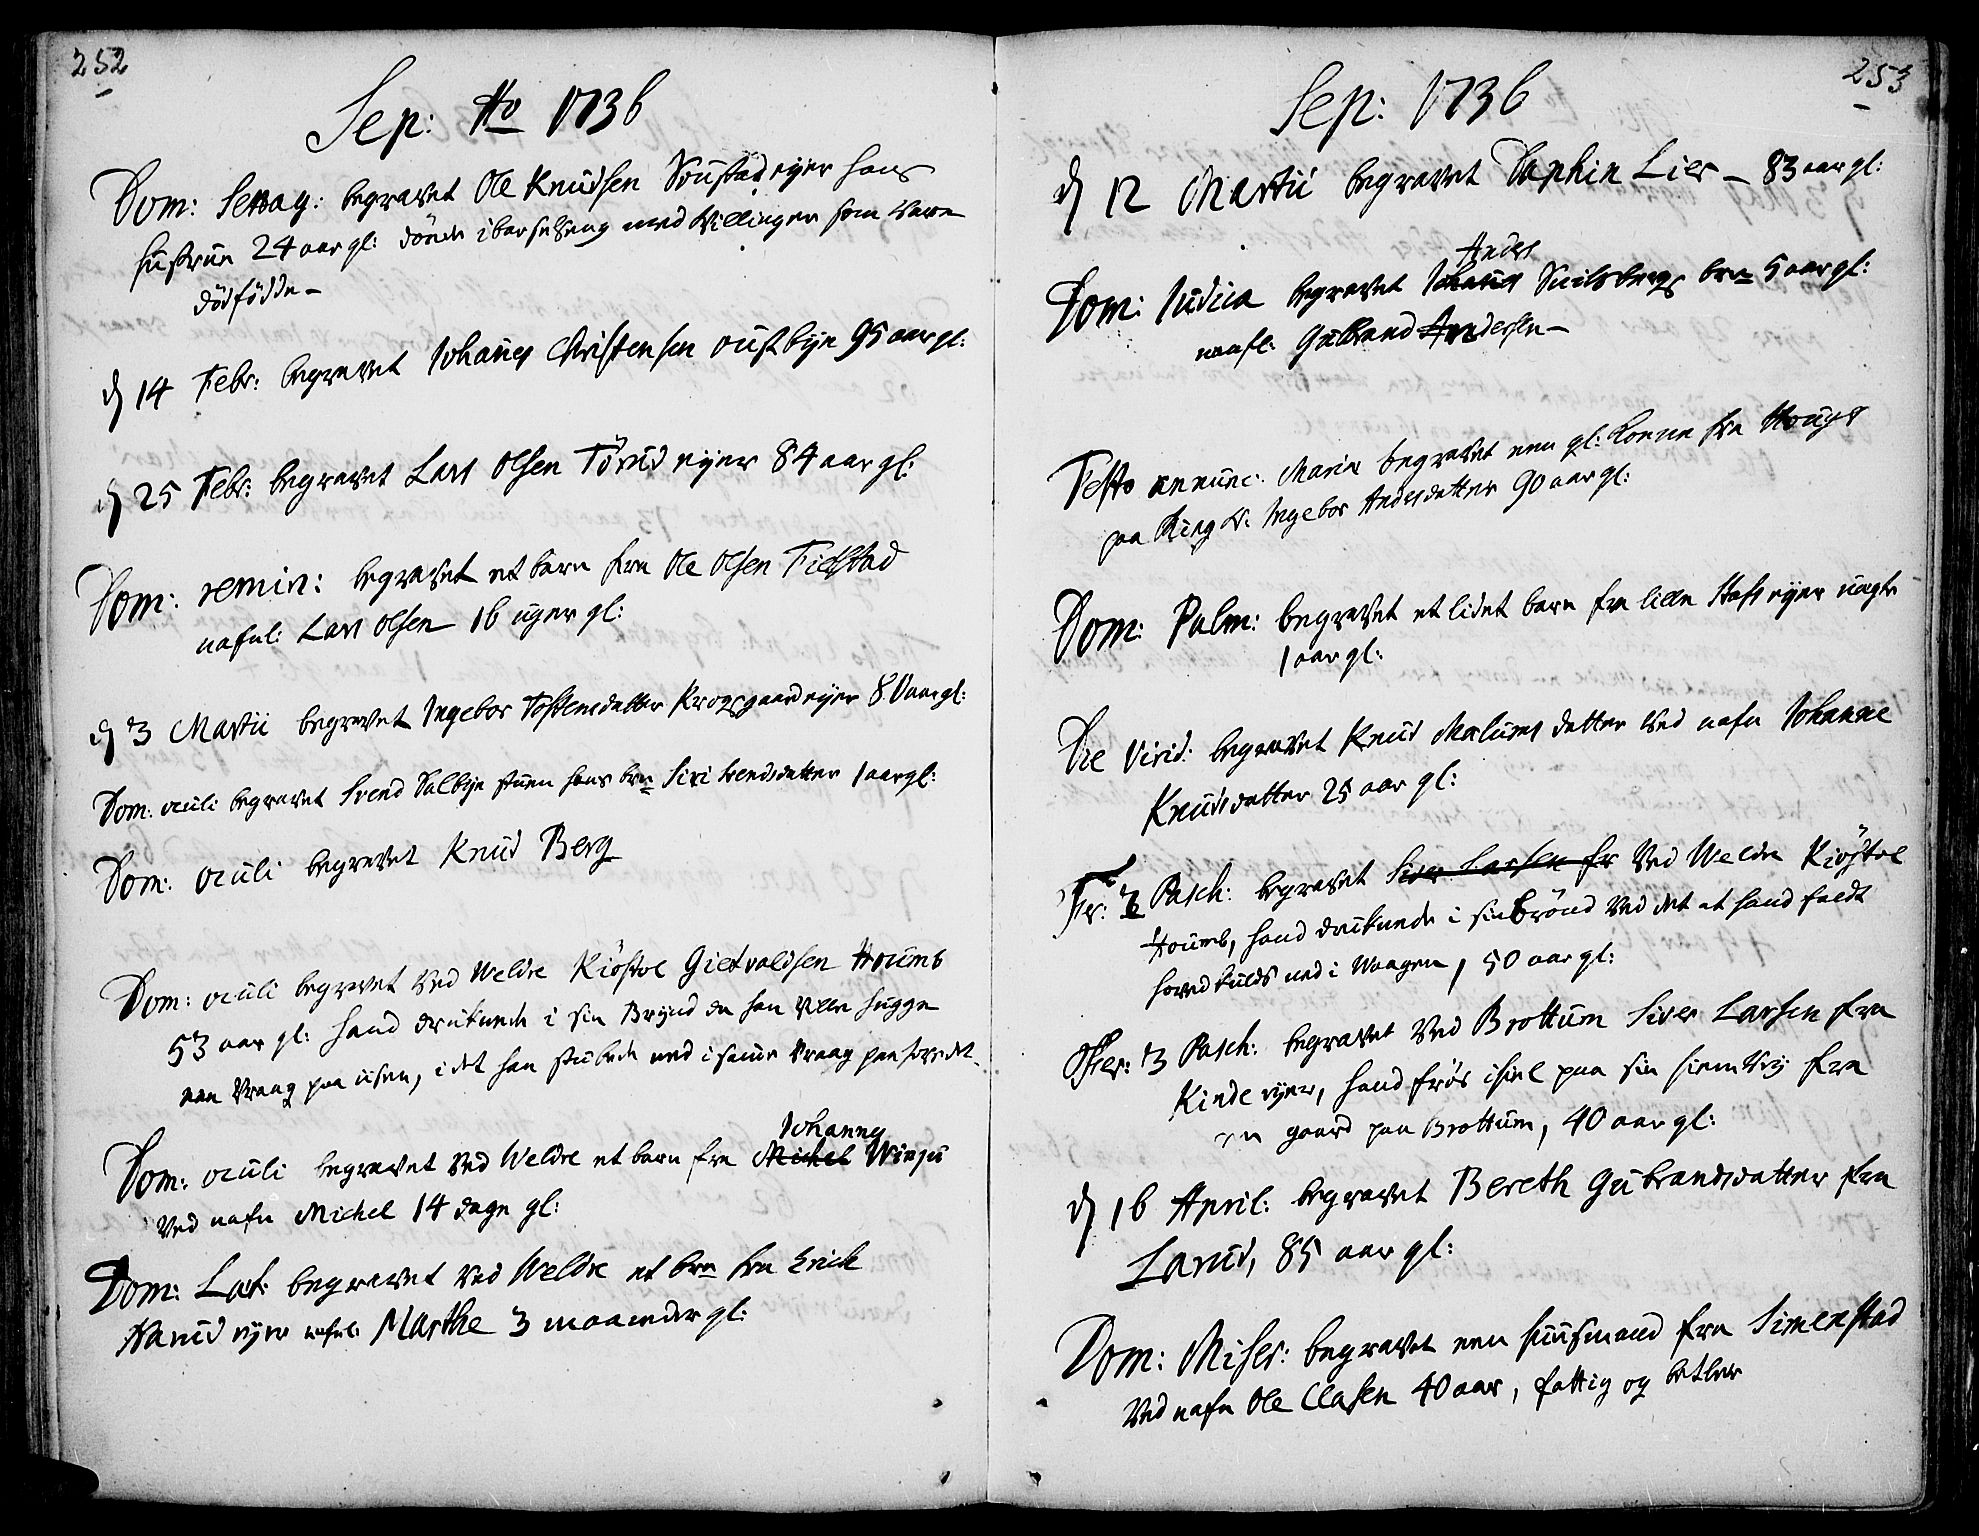 252
Sep: Ao 1736
Dom: Septuag: begravet Ole Knudsen eyer hans
hustrue 24 aar gl: döde i barselseng med tvillinger som vare
dödfödde –
d 14 Febr: begravet Johannes Christensen oustbye 95 aar gl:
d 25 Febr: begravet Lars Olsen Törud eyer 84 aar gl:
Dom: remin: begravet et barn fra Ole Olsen Fielstad
nafnl: Lars Olsen 16 uger gl:
d 3 Martii begravet Ingebor Tostensdatter Krogsgaard eyer 80 aar gl:
Dom: oculi begravet Svend Dalbye stuen hans brn Siri Svendsdatter 1 aar gl:
Dom: oculi begravet Knud Berg
Dom: oculi begravet ved Weldre Kiöstol Gietvoldsen Houmb
53 aar gl: hand druknede i sin Brynd da han ville hugge
een Vraag paa iisen, i det han stubede ned i samme Vraag paa hovedet
Johannes
Dom: oculi begravet ved Weldre et barn fra Michel Winju
ved nafn Michel 14 dage gl:
Dom: Læt: begravet ved Weldre et brn fra Erich
Harud eyer nafnl: Marthe 3 maaneder gl:
253
Sep: 1736
d 12 Martii begravet Daphin Lier – 83 aar gl:
Anders
Dom: Judica begravet Johannes Snilsbergs brn 5 aar gl:
nafl: Gulbrand Andersen –
Festo annunc: Mariæ begravet een gl: Konne fra Hougs
paa Ring s: Ingebor Andersdatter 90 aar gl:
Dom: Palm: begravet et lidet barn fra lille Hofs eyer uægte
1 aar gl:
Die Virid: begravet Knud Malums datter ved nafn Johanne
Knudsdatter 25 aar gl:
Fer: 2 Pasch: begravet Siver Larsen fr ved Weldre Kiöstol
Houmb, hand druknede i sin brönd ved det at hand faldt
hovedkulds ned i Waagen, 50 aar gl:
Fer: 3 Pasch: begravet ved Brottum Siver Larsen fra
Kinde eyer, hand frös ihiel paa sin hiem Vey fra
en gaard paa Brottum, 40 aar gl:
d 16 April: begravet Bereth Gubrandsdatter fra
Larud, 85 aar gl:
Dom: Miser: begravet een huusmand fra Simenstad
ved nafn Ole Clasen 40 aar, fattig og betler